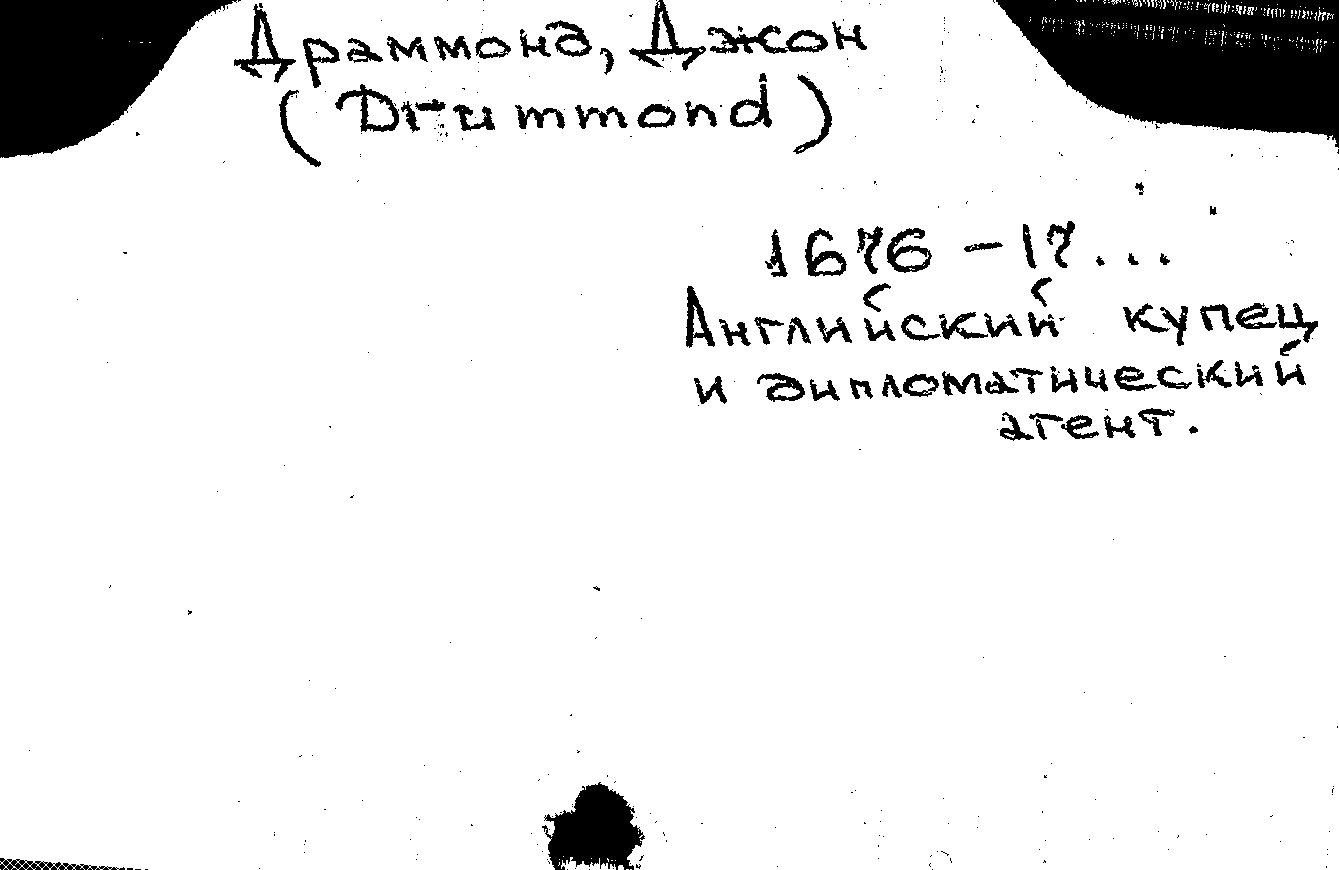 Драммонд, Джон
(Drummond)
1676 – 17...
Английский купец
и дипломатический
агент.